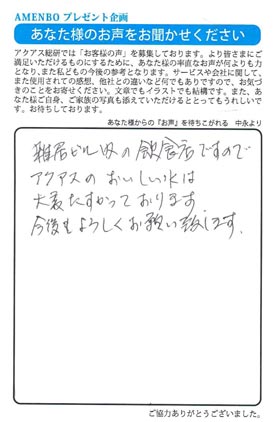 AMENBO プレゼント企画
あなた様のお声をお聞かせください
アクアス総研では「お客様の声」を募集しております。より皆さまにご
満足いただけるものにするために、あなた様の率直なお声が何よりも力
となり、また私どもの今後の参考となります。サービスや会社に関して、
また使用されての感想、他社との違いなど何でもありですので、お気づ
きのことをお寄せください。文章でもイラストでも結構です。また、あ
なた様ご自身、ご家族の写真も添えていただけるととってもうれしいで
す。お待ちしております。
あなた様からの『お声』を待ちこがれる 中永より
雑居ビル内の飲食店ですので
アクアスのおいしい水は
大変たすかっております。
今後もよろしくお願い致します。
ご協力ありがとうございました。